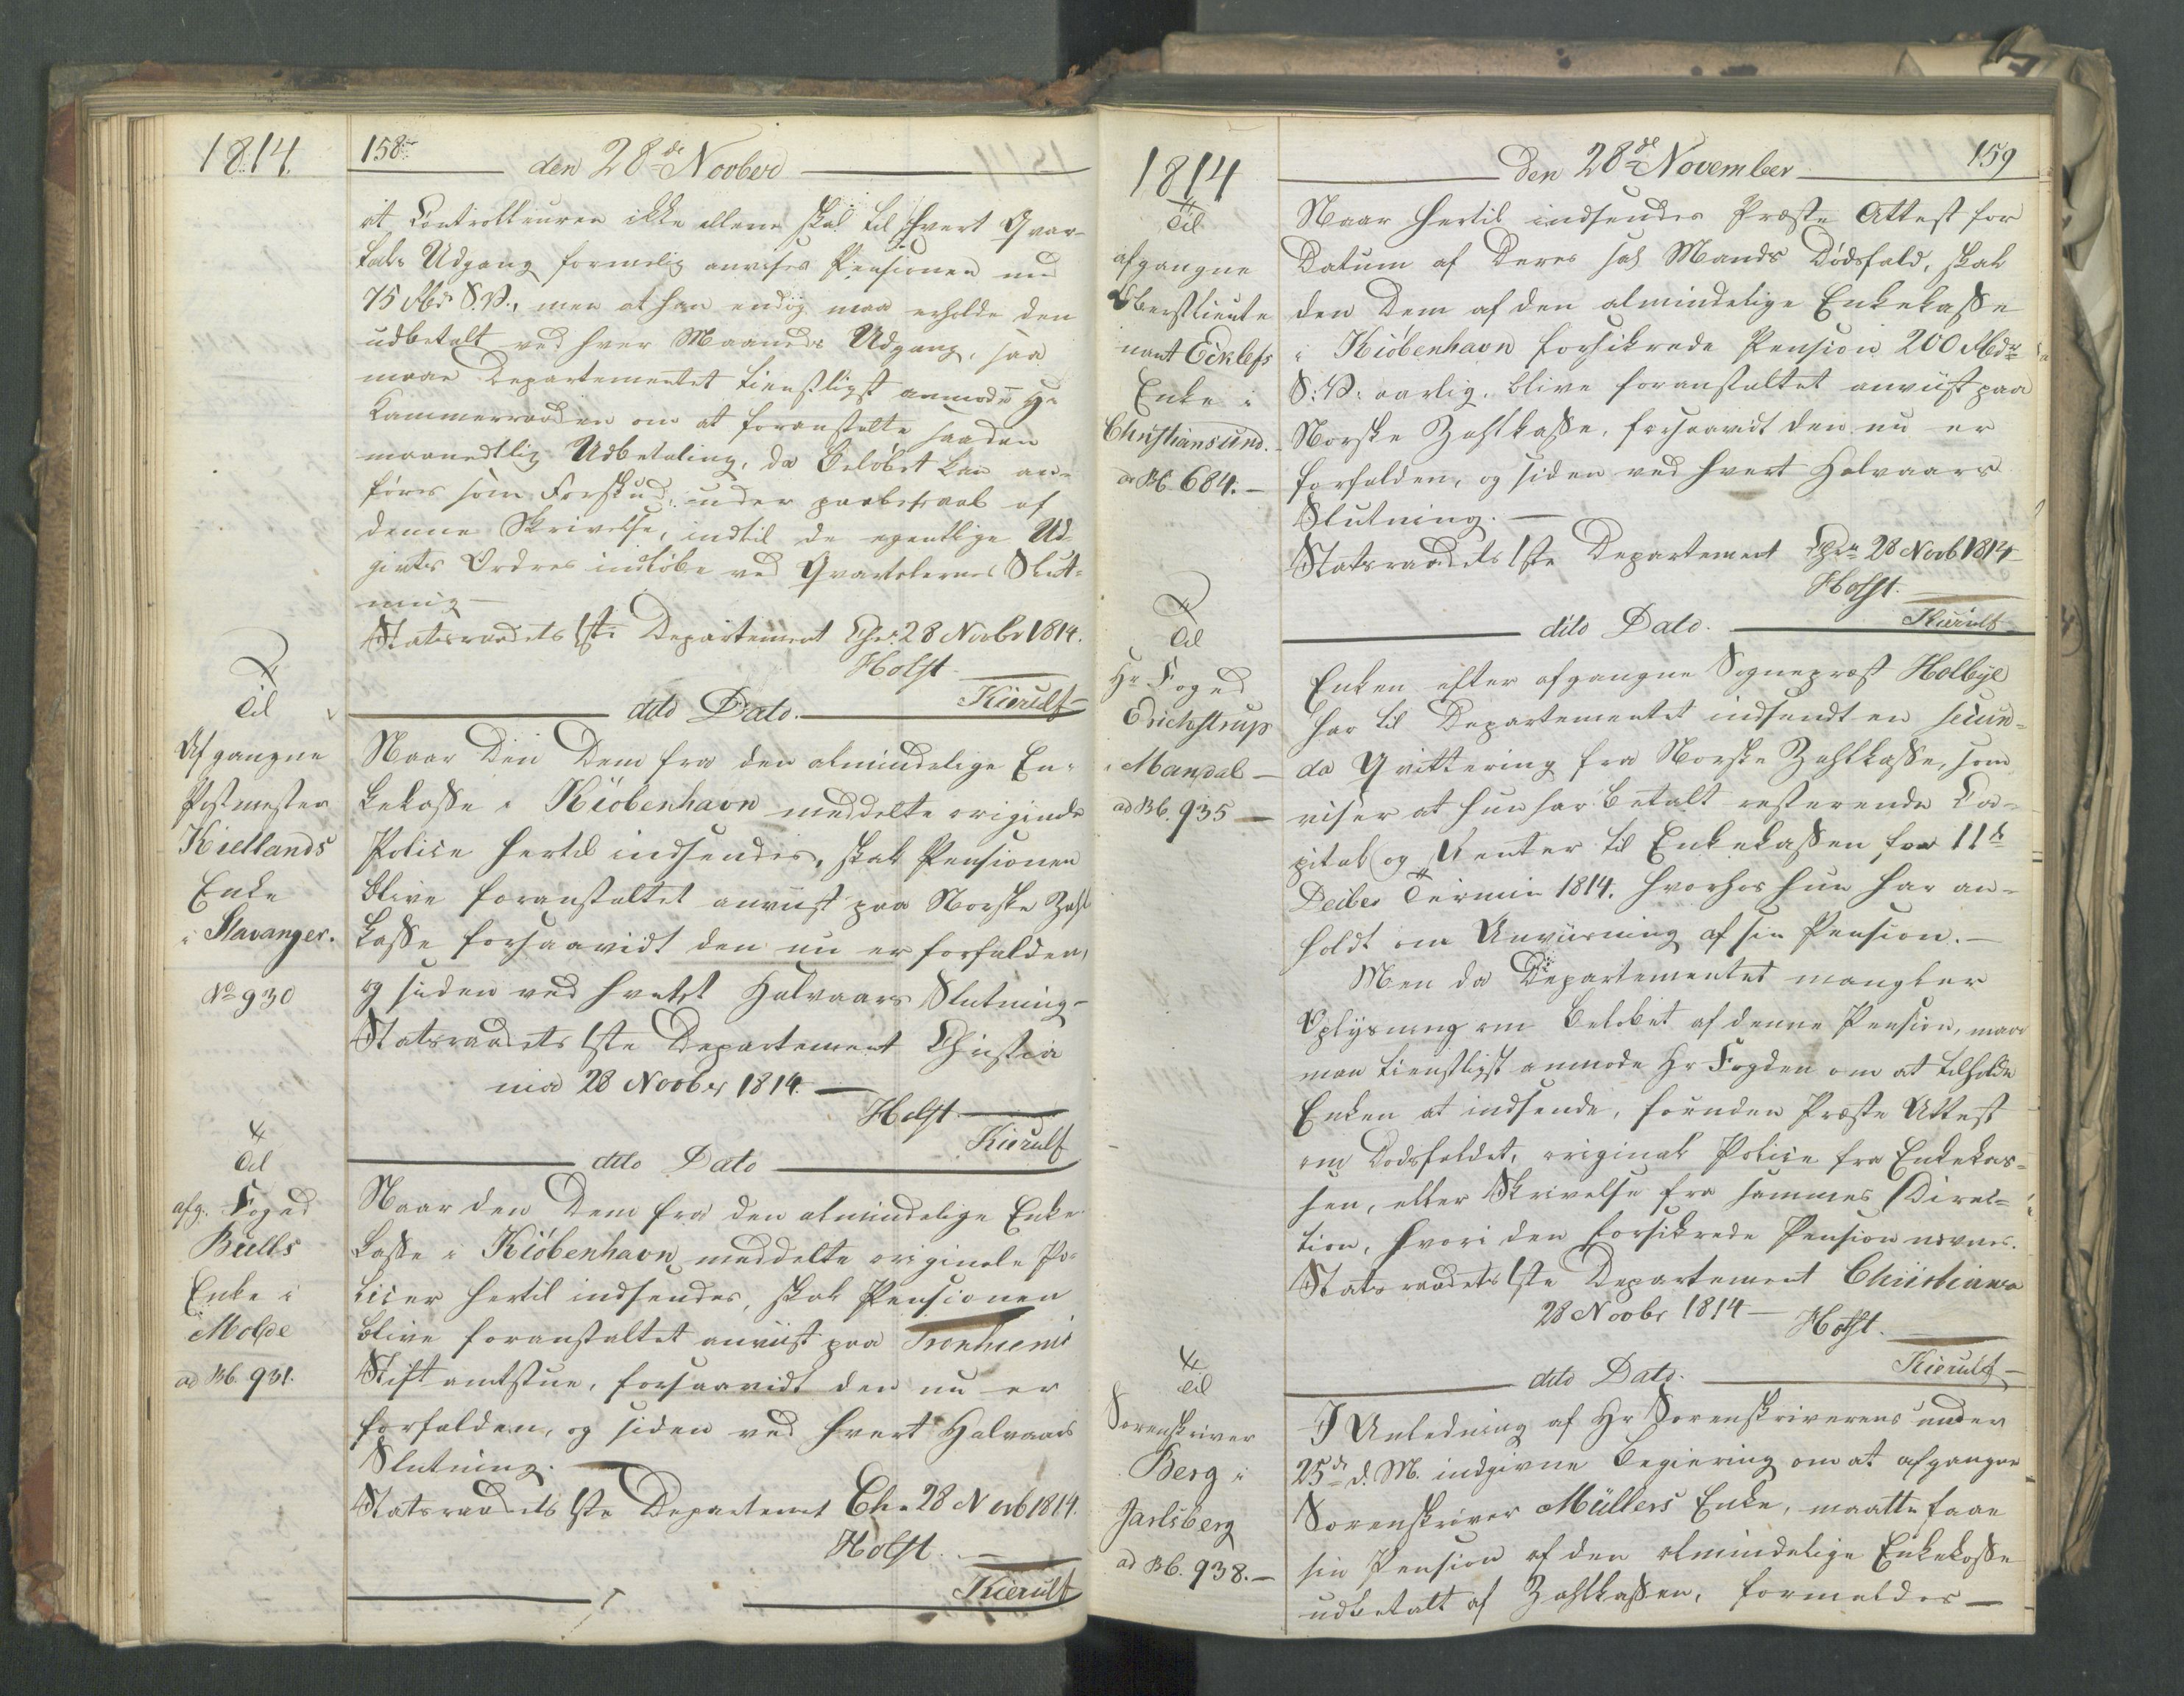 1814.
158
den 28de Novber
at Controlleuren ikke allene skal til hvert Qvar-
tals Udgang formelig anvises Pensionen med
75 Rbd S.V., men at han endog maa erholde den
udbetalt ved hver Maaneds Udgang, saa
maae Departementet tienstligst anmode Hr
Kammerraaden om at foranstalte saadan
maanedtlig Udbetaling, da Beløbet kan an-
føres som Forskud, under paaberaab af
denne Skrivelse, indtil de egentlige Ud-
givts Ordres indløbe ved Qvartalernes Slut-
ning
Statsraadets 1ste Departement Chra 28 Novbr 1814.
Holst
Kierulf
Til
Afgangne
Postmester
Kiellands
Enke
i Stavanger.
No 930
dito Dato.
Naar Den Dem fra den almindelige En-
kekasse i Kiöbenhavn meddelte originale
Police hertil indsendes, skal Pensionen
blive foranstaltet anviist paa Norske Zahl
kasse forsaavidt den nu er forfalden,
og siden ved hvert Halvaars Slutning-
Statsraadets 1ste Departement Christia
nia 28 Novber 1814.
Holst
Kierulf
Til
afg. Foged
Bulls
Enke i
Molde
ad Rb. 931.
dito Dato
Naar den Dem fra den almindelige Enke
kasse i Kiöbenhavn meddelte originale Po-
licer hertil indsendes, skal Pensionen
blive foranstaltet anviist paa Tronhiems
Stiftamtstue, forsaavidt den nu er
forfalden, og siden ved hvert Halvaars
Slutning.
Statsraadets 1ste Departemet Chra 28 Novb 1814.
Holst.
Kierulf
1814
den 28de November
159
Til
afgangne
Oberstlieute
nant Ecklefs
Enke i
Christiansund.
ad Rb 684.
Naar hertil indsendes Præste Attest for
Datum af Deres sal Mands Dödsfald, skal
den Dem af den almindelige Enkekasse
i Kiöbenhavn forsikrede Pension 200 Rbdr
S.V. aarlig, blive foranstaltet anviist paa
Norske Zahlkasse, forsaavidt den nu er
forfalden, og siden ved hvert Halvaars
Slutning.
Statsraadets 1ste Departement Chra 28 Novb 1814
Holst.
Kierulf
Til
Hr Foged
Erichstrup
i Mandal
ad Rb. 935
dito Dato.
Enken efter afgangne Sognepræst Holbye
har til Departementet indsendt en secun-
da Qvittering fra Norske Zahlkasse, som
viser at hun har betalt resterende Ca-
pital og Renter til Enkekassen for 11te
Decber Termin 1814. hvorhos hun har an-
holdt om Anviisning af sin Pension.
Men da Departementet mangler
Oplysning om Belöbet af denne Pension, maae
man tienstligst anmode Hr Fogden om at tilholde
Enken at indsende, foruden Præste Attest
om Dödsfaldet, original Police fra Enkekas-
sen, eller Skrivelse fra sammes Direc-
tion, hvori den forsikrede Pension nævnes.
Statsraadets 1ste Departement Christiania
28 Novbr 1814
Holst.
Kierulf
Til
Sorenskriver
Berg i
Jarlsberg
ad Rb. 938.
dito Dato.
I Anledning af Hr Sorenskriverens under
25de d. M. indgivne Begiering om at afgangne
Sorenskriver Müllers Enke, maatte faae
sin Pension af den almindelige Enkekasse
udbetalt af Zahlkassen, formeldes